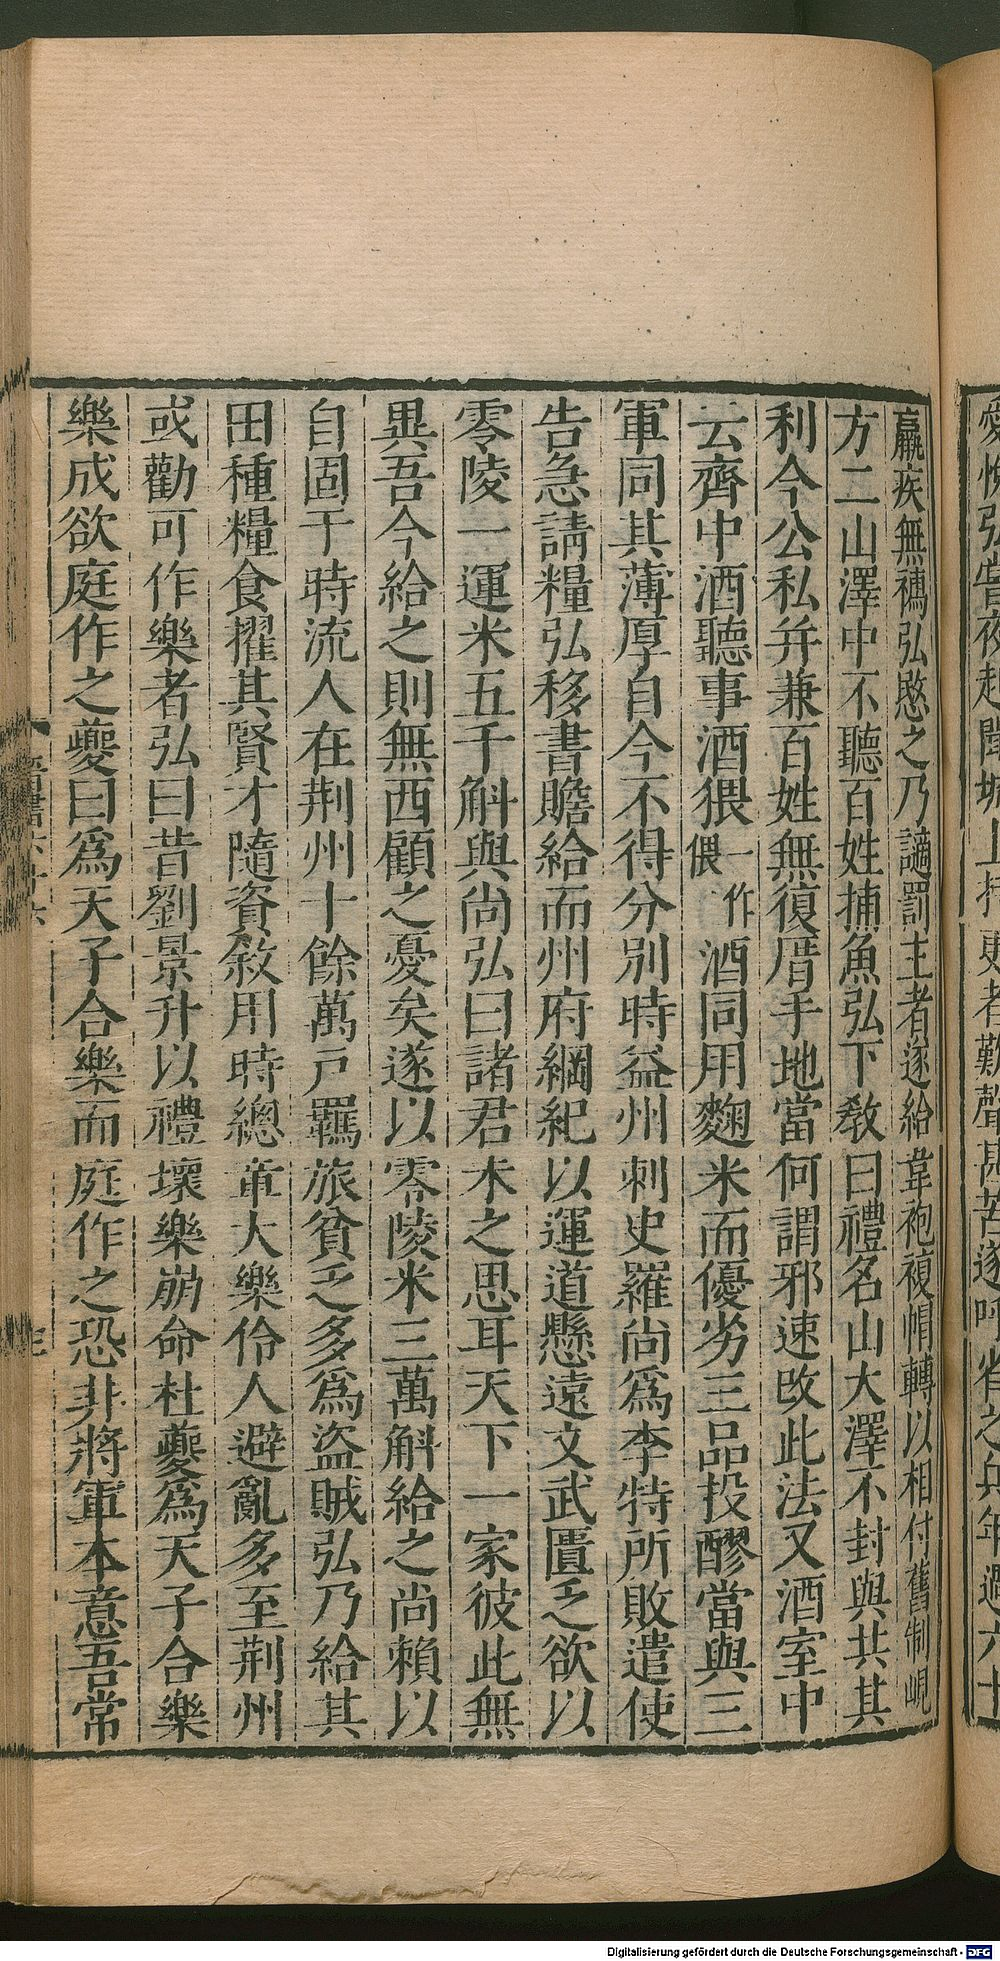 愛悅弘嘗夜起聞城上持更者歎聲甚苦遂呼省之兵年過六十
羸疾無襦弘愍之乃謫罰主者遂給韋袍複帽轉以相付舊制峴
方二山澤中不聽百姓捕魚弘下敎曰禮名山大澤不封與共其
利今公私幷兼百姓無復厝手地當何謂邪速改此法又酒室中
云齊中酒聽事酒猥一作偎酒同用麴米而優劣三品投醪當與三
軍同其薄厚自今不得分別時益州刺史羅尚爲李特所敗遣使
告急請糧弘移書贍給而州府綱紀以運道懸遠文武匱乏欲以
零陵一運米五千斛與尚弘曰諸君未之思耳天下一家彼此無
異吾今給之則無西顧之憂矣遂以零陵米三萬斛給之尚賴以
自固于時流人在荆州十餘萬戶羈旅貧乏多爲盜賊弘乃給其
田種糧食擢其賢才隨資敘用時總章大樂伶人避亂多至荆州
或勸可作樂者弘曰昔劉景升以禮壞樂崩命杜夔爲天子合樂
樂成欲庭作之夔曰爲天子合樂而庭作之恐非將軍本意吾常
晉書六十六
Digitalisierung gefördert durch die Deutsche Forschungsgemeinschaft - DFG